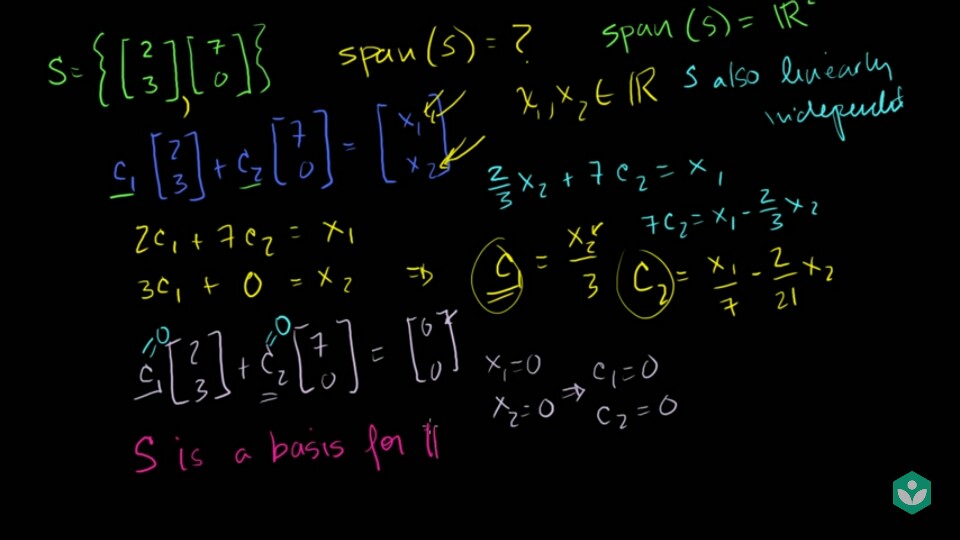 S = { [2 3], [7 0] }
span(S) = ?
span(S) = ℝ²
x₁, x₂ ∈ ℝ
S also linearly
independent
c₁ [2 3] + c₂ [7 0] = [x₁ x₂]
2/3 x₂ + 7c₂ = x₁
7c₂ = x₁ - 2/3 x₂
2c₁ + 7c₂ = x₁
3c₁ + 0 = x₂ ⇒ c₁ = x₂/3
c₂ = x₁/7 - 2/21 x₂
=0 =0
c₁ [2 3] + c₂ [7 0] = [0 0]
x₁=0
x₂=0 ⇒ c₁=0
c₂=0
S is a basis for